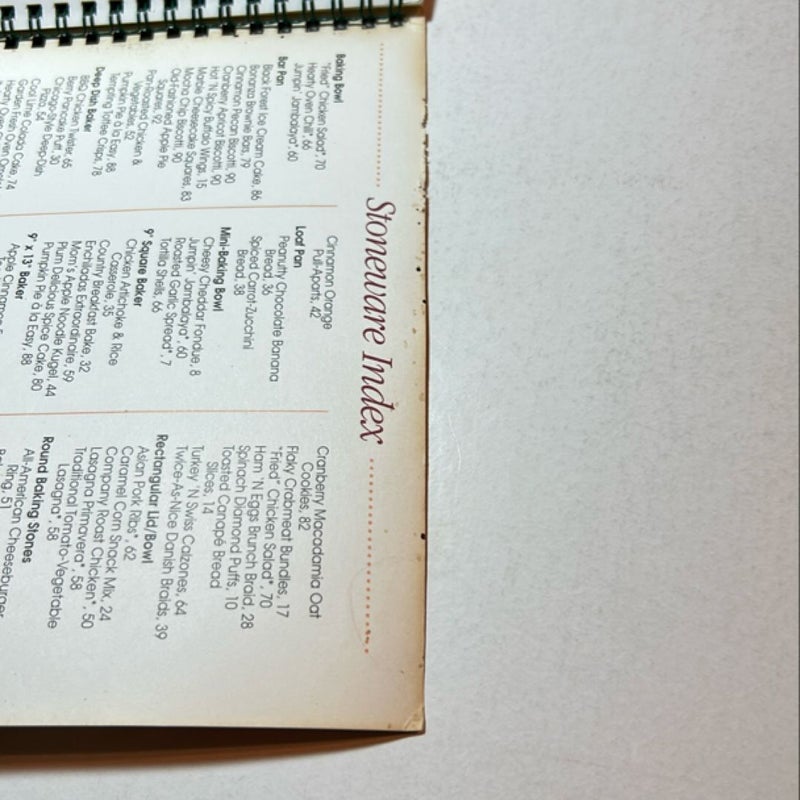 Stoneware Index
Baking Bowl
"Fried" Chicken Salad*, 70
Hearty Oven Chili*, 66
Jumpin' Jambalaya*, 60
Bar Pan
Black Forest Ice Cream Cake, 86
Bonanza Brownie Bars, 79
Cinnamon Pecan Biscotti, 90
Cranberry Apricot Biscotti, 90
Hot 'N Spicy Buffalo Wings, 15
Marble Cheesecake Squares, 83
Mocha Chip Biscotti, 90
Old-Fashioned Apple Pie
Squares, 92
Pan-Roasted Chicken &
Vegetables, 52
Pumpkin Pie à la Easy, 88
Tempting Toffee Crisps, 78
Deep Dish Baker
BBQ Chicken Twister, 65
Berry Pancake Puff, 30
Chicago-Style Deep-Dish
Pizza, 54
Cool Lime Colada Cake, 74
Garden Fresh Oven
Cinnamon Orange
Pull-Aparts, 42
Loaf Pan
Peanutty Chocolate Banana
Bread, 36
Spiced Carrot-Zucchini
Bread, 38
Mini-Baking Bowl
Cheesy Cheddar Fondue, 8
Jumpin' Jambalaya*, 60
Roasted Garlic Spread*, 7
Tortilla Shells, 66
9" Square Baker
Chicken Artichoke & Rice
Casserole, 35
Country Breakfast Bake, 32
Enchiladas Extraordinaire, 59
Mom's Apple Noodle Kugel, 44
Plum Delicious Spice Cake, 80
Pumpkin Pie à la Easy, 88
9" x 13" Baker
Apple Cinnamon
Cranberry Macadamia Oat
Cookies, 82
Flaky Crabmeat Bundles, 17
"Fried" Chicken Salad*, 70
Ham 'N Eggs Brunch Braid, 28
Spinach Diamond Puffs, 10
Toasted Canapé Bread
Slices, 14
Turkey 'N Swiss Calzones, 64
Twice-As-Nice Danish Braids, 39
Rectangular Lid/Bowl
Asian Pork Ribs*, 62
Caramel Corn Snack Mix, 24
Company Roast Chicken*, 50
Lasagna Primavera*, 58
Traditional Tomato-Vegetable
Lasagna*, 58
Round Baking Stones
All-American Cheeseburger
Ring, 51